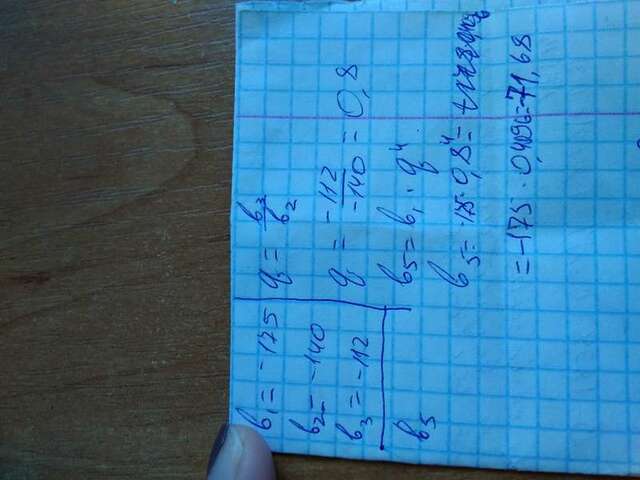 b₁ = -175
b₂ = -140
b₃ = -112
b₅
q = b₃/b₂
q = -112/-140 = 0,8
b₅ = b₁ · q⁴
b₅ = -175 · 0,8⁴ =
= -175 · 0,4096 = -71,68